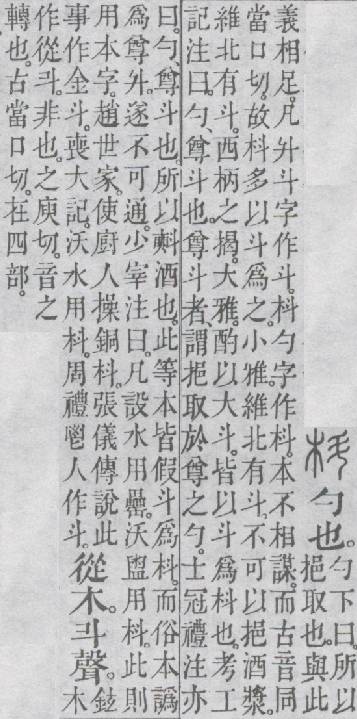 枓 勺也。
勺下曰。所以
挹取也。與此
義相足。凡升斗字作斗。枓勺字作枓。本不相謀。而古音同
當口切。故枓多以斗爲之。小雅。維北有斗。不可以挹酒漿。
維北有斗。西柄之揭。大雅。酌以大斗。皆以斗爲枓也。考工
記注曰。勺、尊斗也。尊斗者、謂挹取於尊之勺。士冠禮注亦
曰。勺、尊斗也。所以㪺酒也。此等本皆假斗爲枓。而俗本譌
爲尊升。遂不可通。少宰注曰。凡設水用罍。沃盥用枓。此則
用本字。趙世家。使厨人操銅枓。張儀傳說此
事作金斗。喪大記。沃水用枓。周禮鬯人作斗。
從木。斗聲。
鉉
木
作從斗。非也。之庾切。音之
轉也。古當口切。在四部。